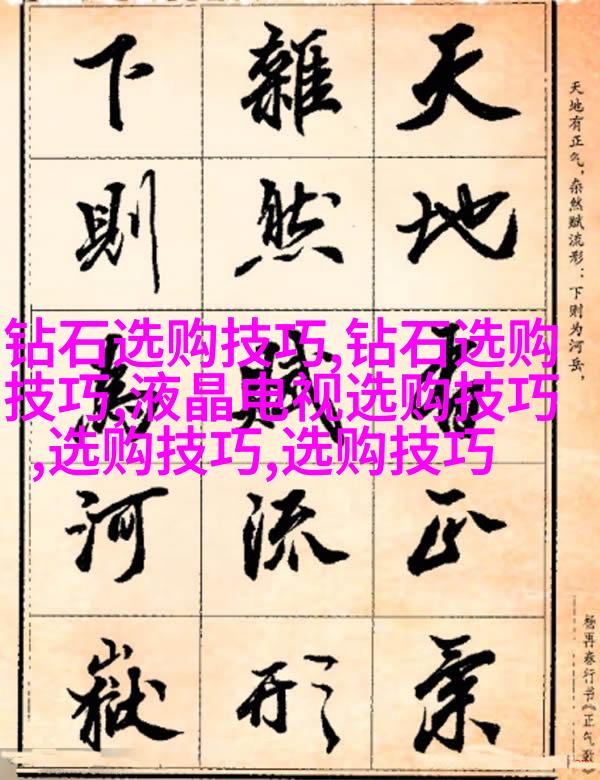 天地有正氣
雜然賦流形
下則為河嶽
天地有正气，杂然赋流形：下则为河岳，
杨再春行书《正气歌》
钻石选购技巧,钻石选购
技巧,液晶电视选购技巧
,选购技巧,选购技巧